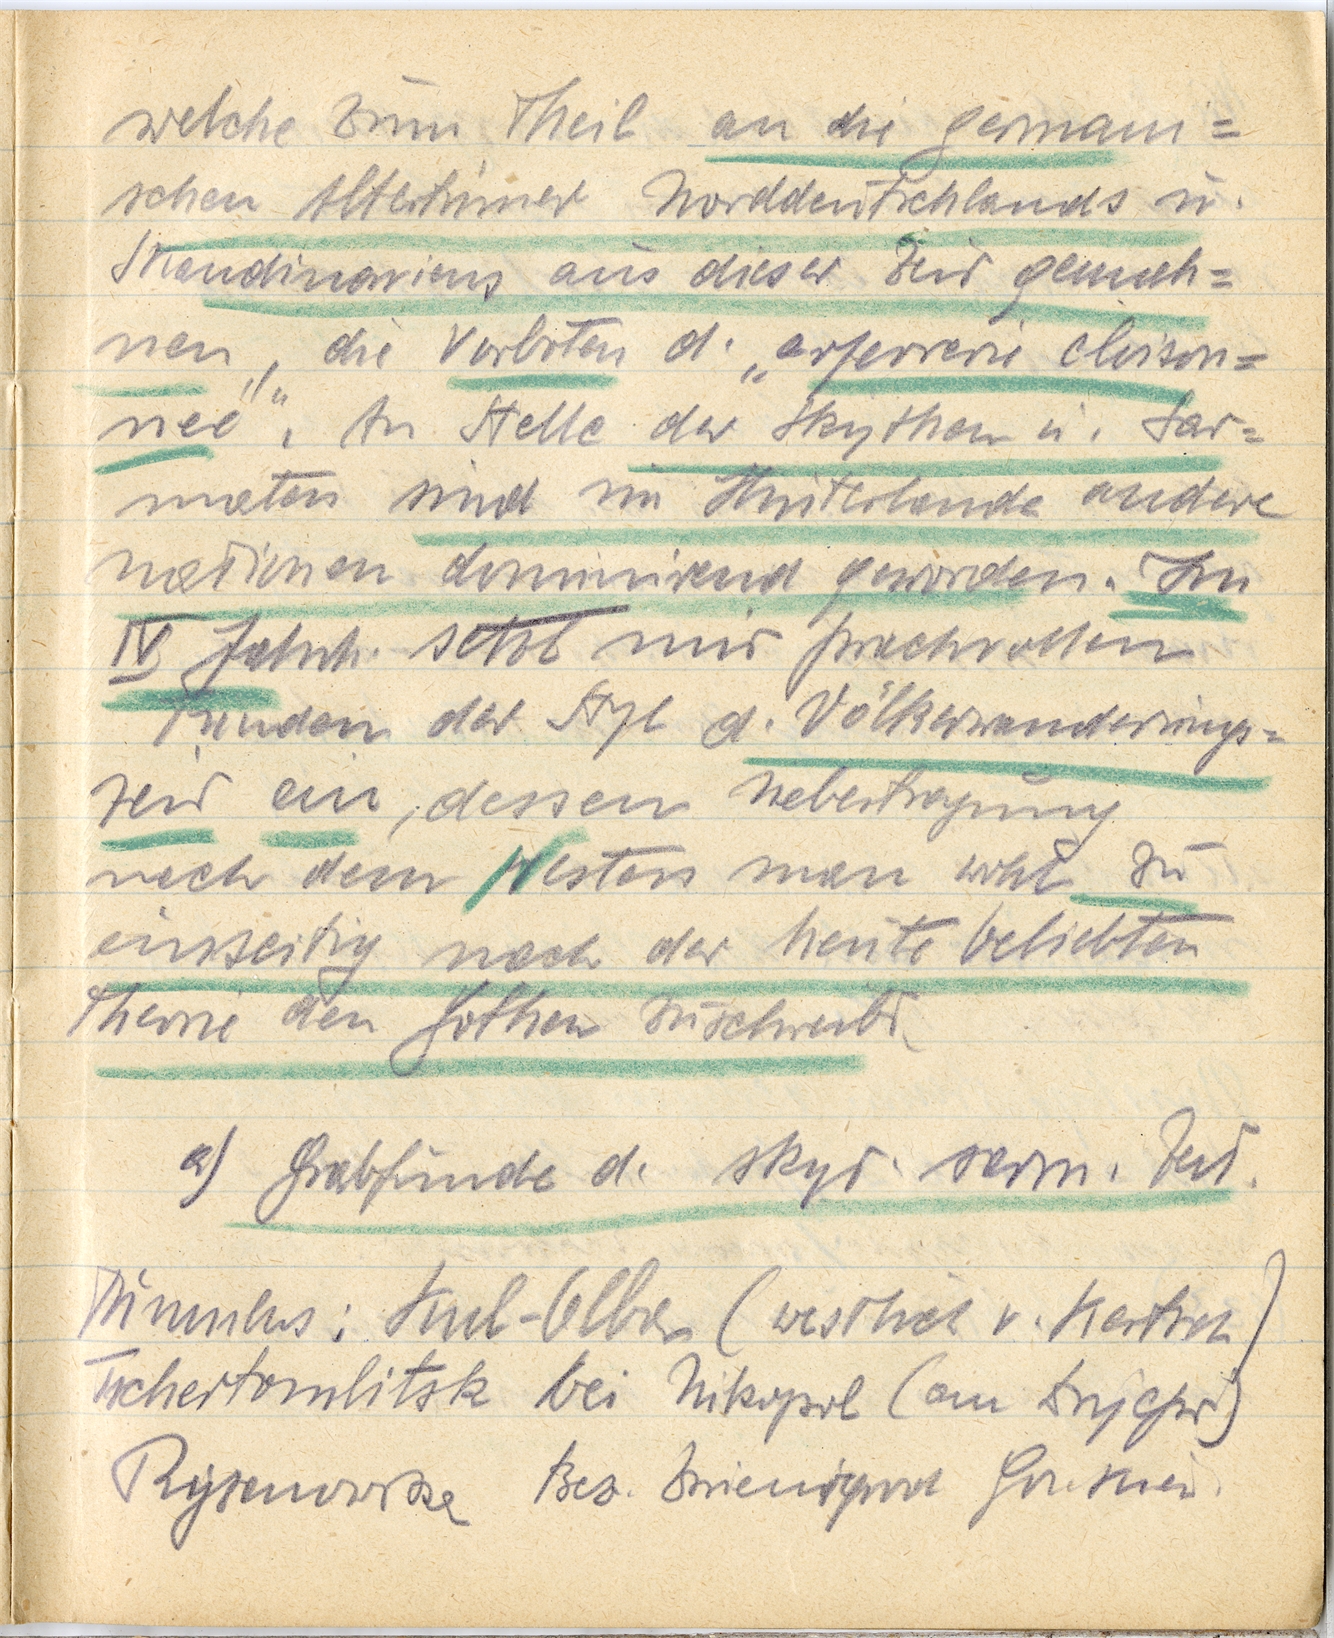 welche zum Theil an die germani=
schen Altertümer Norddeutschlands u.
Skandinaviens aus dieser Zeit gemah=
nen, die Vorboten d. „orfevrerie cloison=
née“. An Stelle der Skythen u. Sar=
maten sind im Hinterlande andere
Nationen dominirend geworden. Im
IV Jahrh. setzt mit prachtvollen
Funden der Styl d. Völkerwanderungs=
zeit ein, dessen Uebertragung
nach dem Westen man wohl zu
einseitig nach der heute beliebten
Theorie den Gothen zuschreibt
a) Grabfunde d. skyt. sarm. Zeit.
Tumulus: Kul-Olba (westlich v. Kertsch)
Tschertomlitsk bei Nikopol (am Dnjepr)
Ryzanowka Bez. Gou. Kiew.